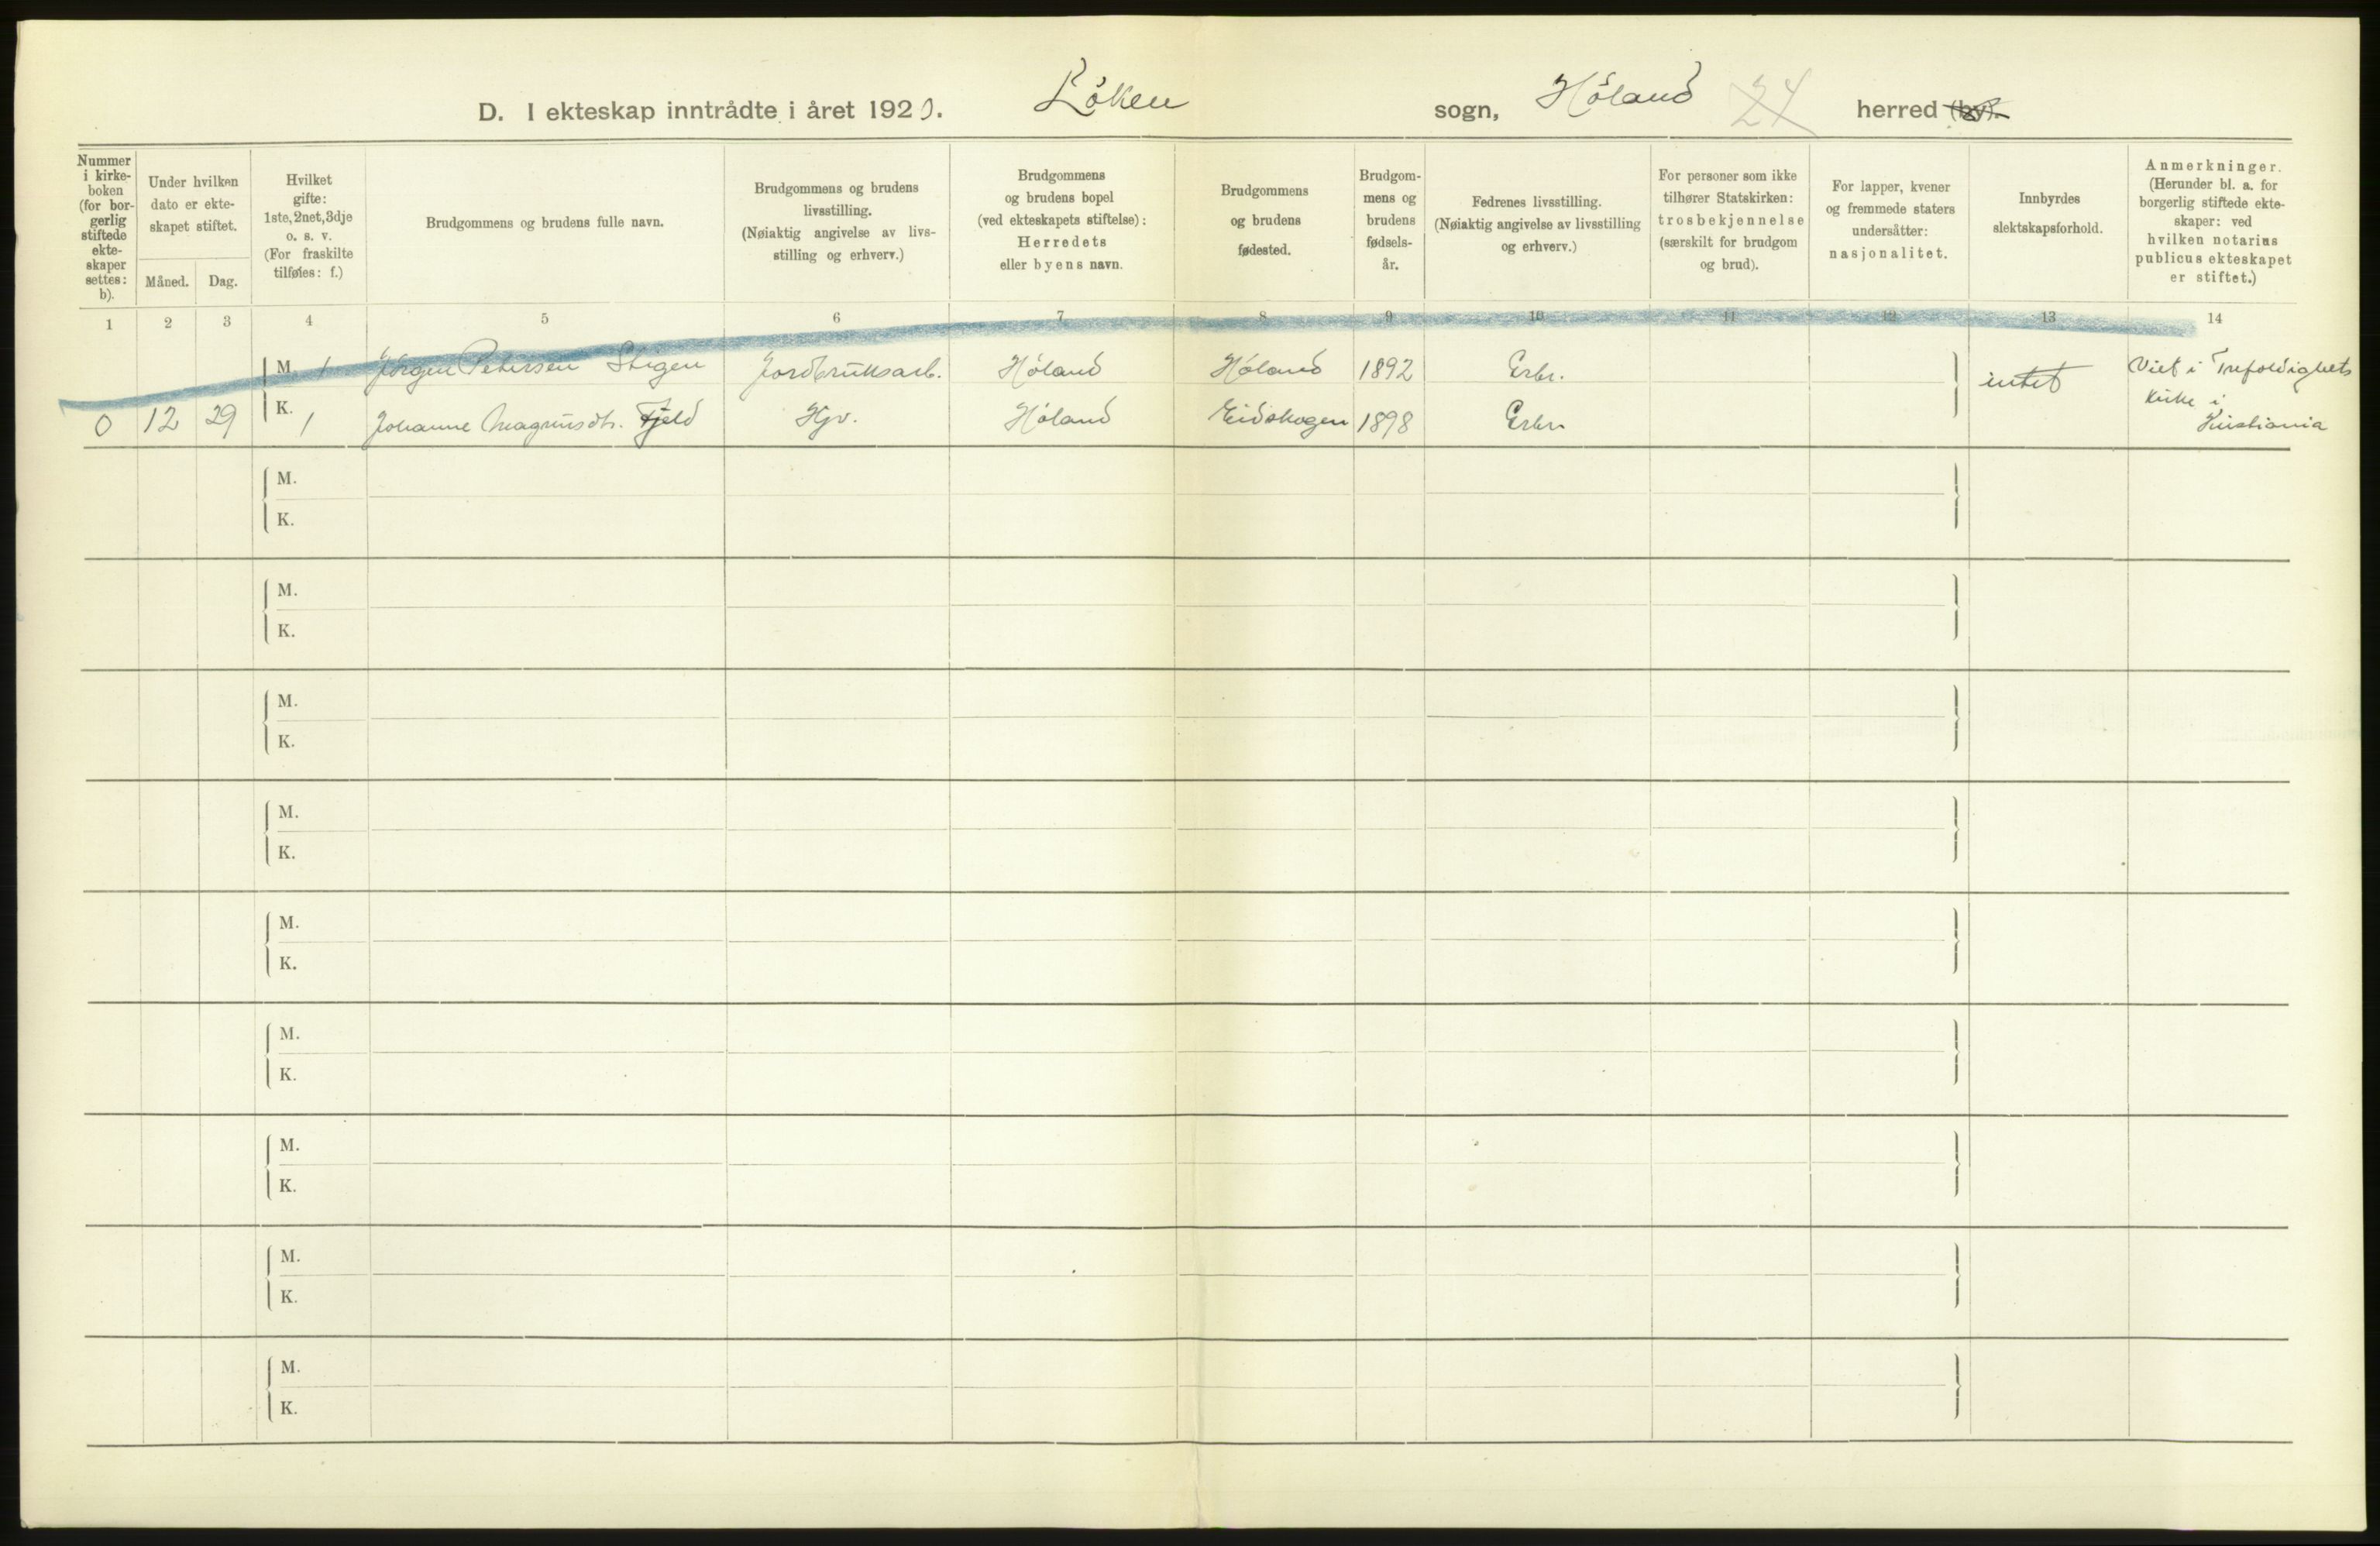 D. I ekteskap inntrådte i året 1920. Löken sogn, Höland 24 herred (by).
Nummer i kirke-
boken
(for bor-
gerlig
stiftede
ekte-
skaper
settes:
b).
Under hvilken
dato er ekte-
skapet stiftet.
Måned. Dag.
Hvilket
gifte:
1ste, 2net, 3dje
o. s. v.
(For fraskilte
tilføies: f.)
Brudgommens og brudens fulle navn.
Brudgommens og brudens
livsstilling.
(Nøiaktig angivelse av livs-
stilling og erhverv.)
Brudgommens
og brudens bopel
(ved ekteskapets stiftelse):
Herredets
eller byens navn.
Brudgommens
og brudens
fødested.
Brudgom-
mens og
brudens
fødsels-
år.
Fedrenes livsstilling.
(Nøiaktig angivelse av livsstilling
og erhverv.)
For personer som ikke
tilhører Statskirken:
trosbekjennelse
(særskilt for brudgom
og brud).
For lapper, kvener
og fremmede staters
undersåtter:
nasjonalitet.
Innbyrdes
slektskapsforhold.
Anmerkninger.
(Herunder bl. a. for
borgerlig stiftede ekte-
skaper: ved
hvilken notarius
publicus ekteskapet
er stiftet.)
1 2 3 4 5 6 7 8 9 10 11 12 13 14
M. 1 Jörgen Petersen Stigen Jordbruksarb. Höland Höland 1892 Grbr. intet Viet i Trefoldighets
kirke i
0 12 29 K. 1 Johanne Magnusdtr. Fjeld Hgv. Höland Eidskogen 1898 Grbr. Kristiania
M.
K.
M.
K.
M.
K.
M.
K.
M.
K.
M.
K.
M.
K.
M.
K.
M.
K.